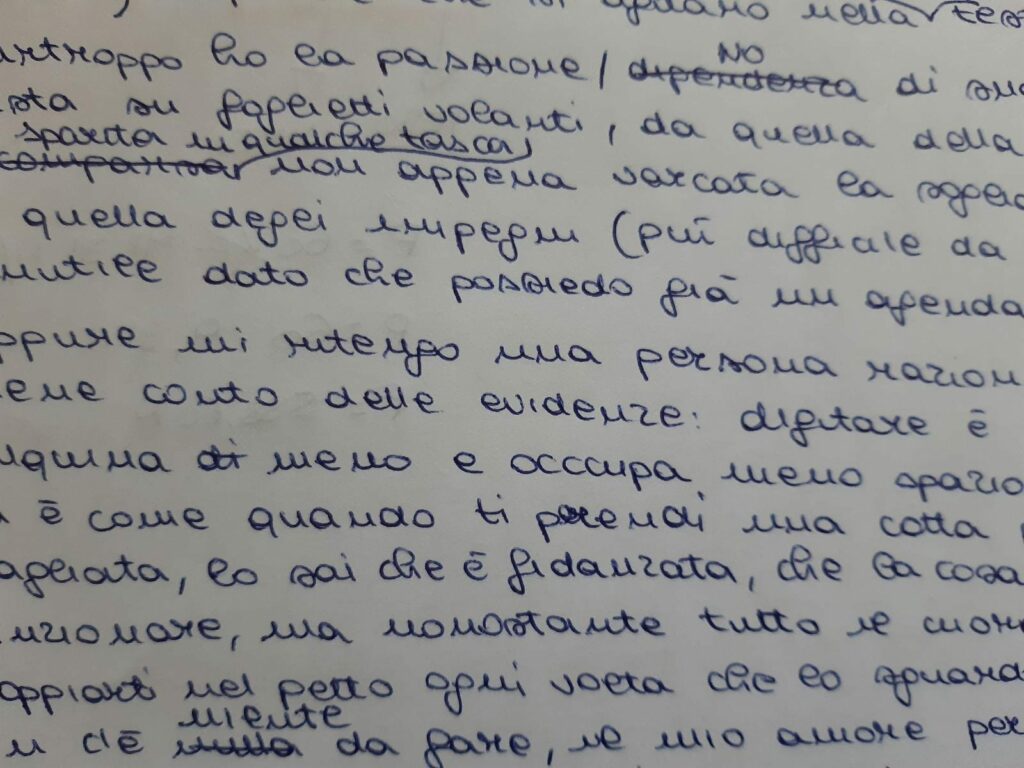 che ti girano nella tes
urtroppo ho la passione / NO dipendenza di su
sta su foglietti volanti, da quella della
sparita in qualche tasca,
comparirà non appena varcata la sogli
quella degli impegni (più difficile da
inutile dato che possiedo già un agenda
ppure mi ritengo una persona razion
iene conto delle evidenze: digitare è
nquina di meno e occcupa meno spazio
a è come quando ti prendi una cotta p
agliata, lo sai che è fidanzata, che la cosa
nzionare, ma nonostante tutto il cuore
oppiarti nel petto ogni volta che lo sguard
niente
n c'è nulla da fare, il mio amore per